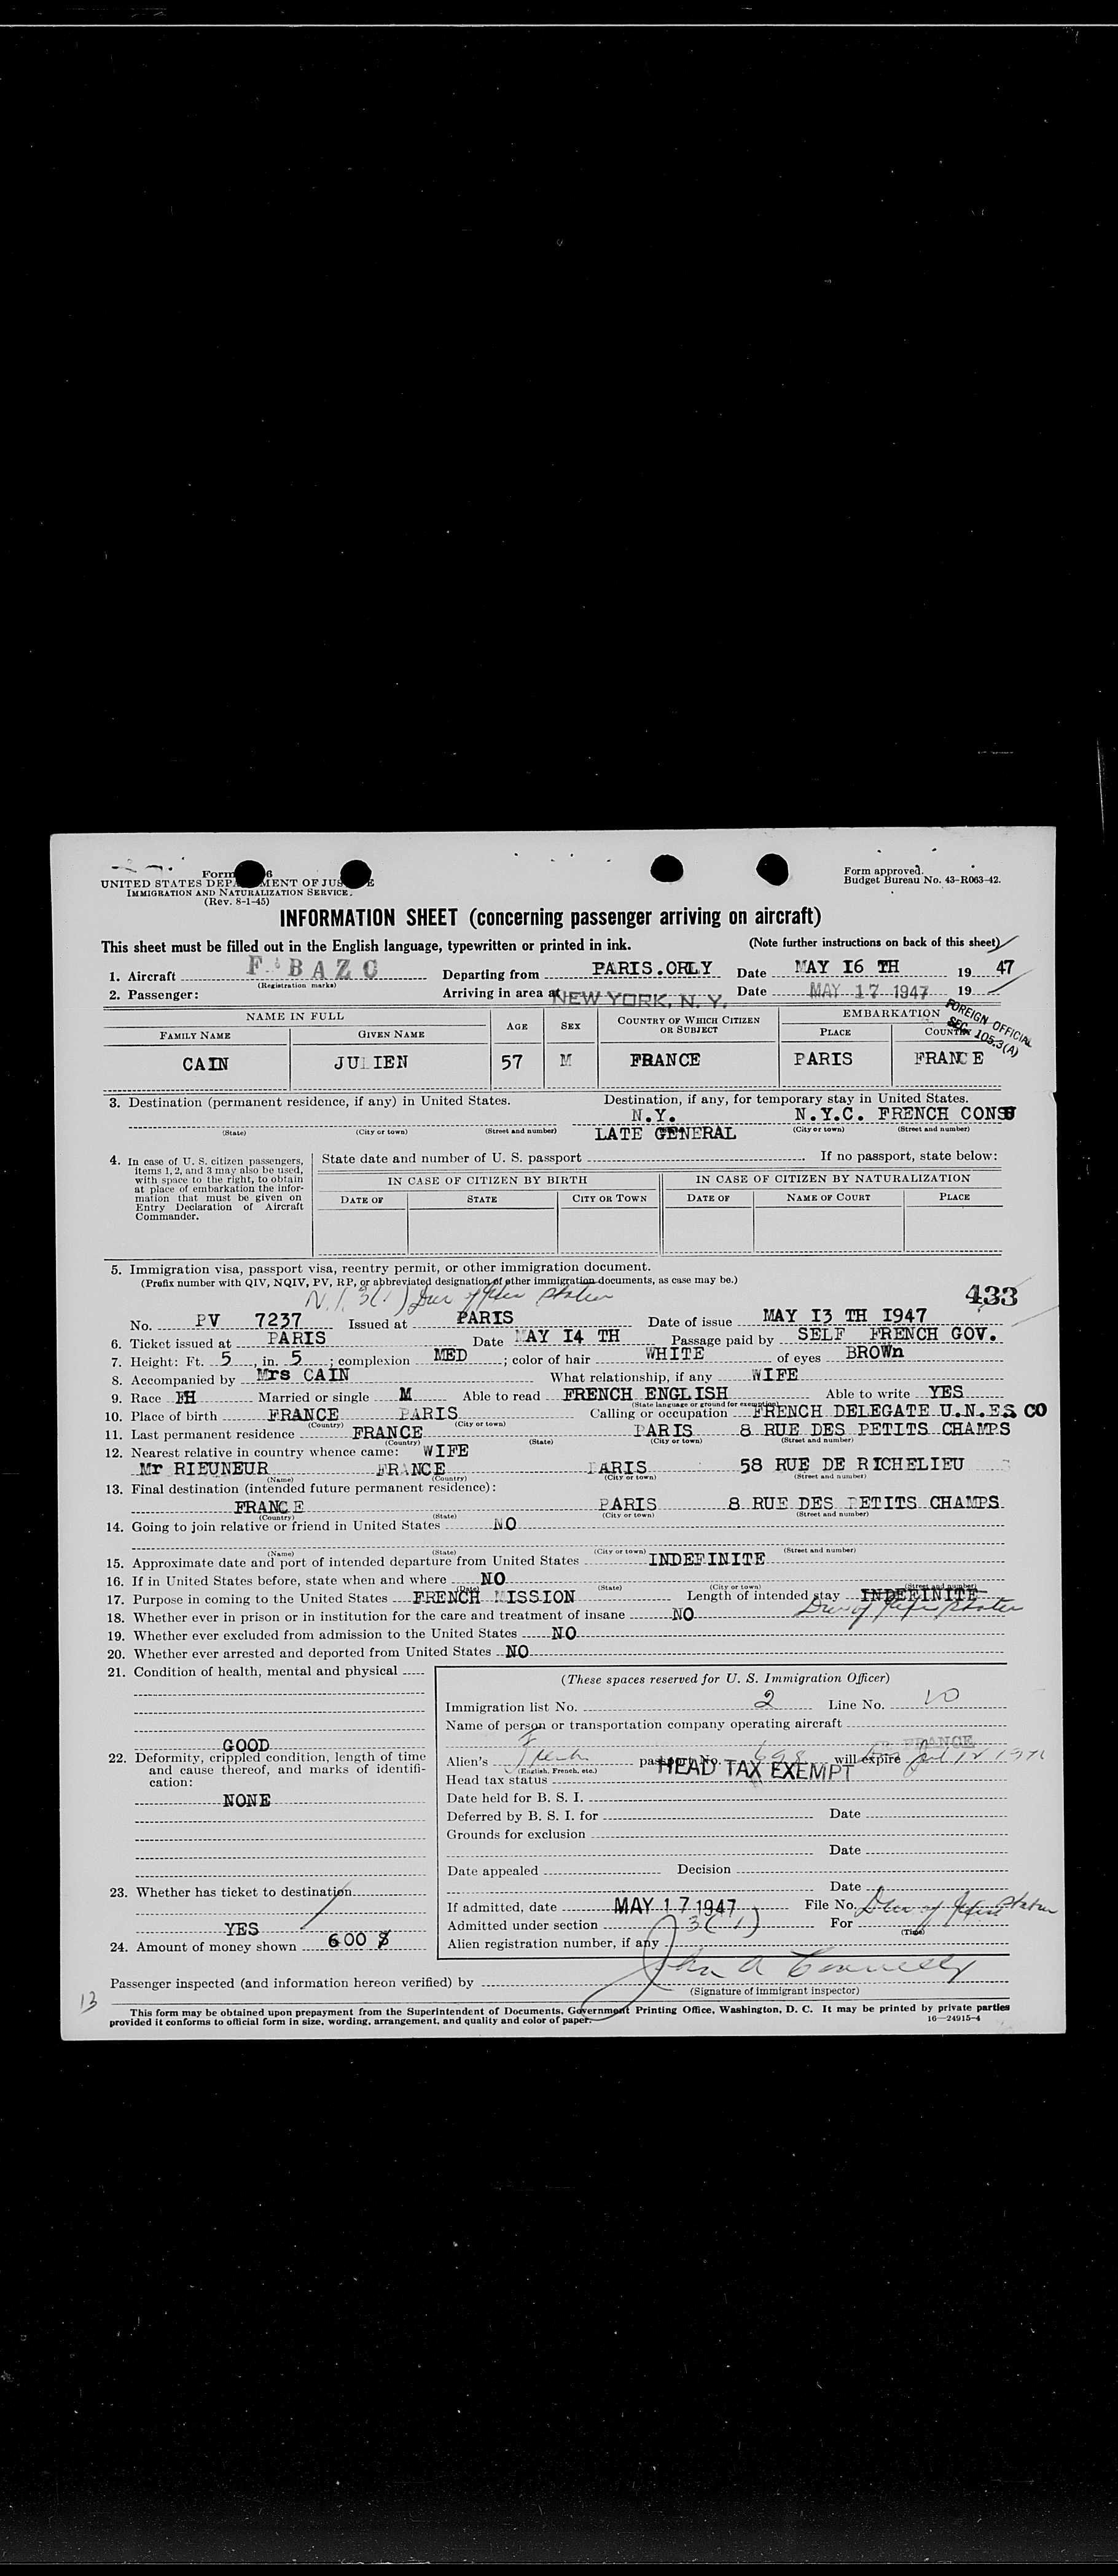 Form 6
UNITED STATES DEPARTMENT OF JUSTICE
IMMIGRATION AND NATURALIZATION SERVICE.
(Rev. 8-1-45)
Form approved.
Budget Bureau No. 43-R063-42.
INFORMATION SHEET (concerning passenger arriving on aircraft)
This sheet must be filled out in the English language, typewritten or printed in ink. (Note further instructions on back of this sheet)
1. Aircraft F BAZC Departing from PARIS.ORLY Date MAY I6 TH 19 47
(Registration marks)
2. Passenger: Arriving in area at NEW YORK, N. Y. Date MAY 17 1947 19
FOREIGN OFFICIAL
SEC. 105.3(A)
NAME IN FULL AGE SEX COUNTRY OF WHICH CITIZEN OR SUBJECT EMBARKATION
FAMILY NAME GIVEN NAME PLACE COUNTRY
CAIN JULIEN 57 M FRANCE PARIS FRANCE
3. Destination (permanent residence, if any) in United States. Destination, if any, for temporary stay in United States.
N.Y. N.Y.C. FRENCH CONSU
(State) (City or town) (Street and number) LATE GENERAL (City or town) (Street and number)
4. In case of U. S. citizen passengers, items 1, 2, and 3 may also be used, with space to the right, to obtain at place of embarkation the information that must be given on Entry Declaration of Aircraft Commander.
State date and number of U. S. passport If no passport, state below:
IN CASE OF CITIZEN BY BIRTH IN CASE OF CITIZEN BY NATURALIZATION
DATE OF STATE CITY OR TOWN DATE OF NAME OF COURT PLACE
5. Immigration visa, passport visa, reentry permit, or other immigration document.
(Prefix number with QIV, NQIV, PV, RP, or abbreviated designation of other immigration documents, as case may be.)
433
No. PV 7237 Issued at PARIS Date of issue MAY I3 TH I947
6. Ticket issued at PARIS Date MAY I4 TH Passage paid by SELF FRENCH GOV.
7. Height: Ft. 5, in. 5; complexion MED; color of hair WHITE of eyes BROWn
8. Accompanied by Mrs CAIN What relationship, if any WIFE
9. Race FH Married or single M Able to read FRENCH ENGLISH Able to write YES
(State language or ground for exemption)
10. Place of birth FRANCE PARIS Calling or occupation FRENCH DELEGATE U.N.ES CO
(Country) (City or town)
11. Last permanent residence FRANCE PARIS 8 RUE DES PETITS CHAMPS
(Country) (State) (City or town) (Street and number)
12. Nearest relative in country whence came: WIFE
Mr RIEUNEUR FRANCE PARIS 58 RUE DE RICHELIEU
(Name) (Country) (City or town) (Street and number)
13. Final destination (intended future permanent residence):
FRANCE PARIS 8 RUE DES PETITS CHAMPS
(Country) (State) (City or town) (Street and number)
14. Going to join relative or friend in United States NO
(Name) (State) (City or town) (Street and number)
15. Approximate date and port of intended departure from United States INDEFINITE
16. If in United States before, state when and where NO
(Date) (State) (City or town) (Street and number)
17. Purpose in coming to the United States FRENCH MISSION Length of intended stay INDEFINITE
18. Whether ever in prison or in institution for the care and treatment of insane NO
19. Whether ever excluded from admission to the United States NO
20. Whether ever arrested and deported from United States NO
21. Condition of health, mental and physical
GOOD
22. Deformity, crippled condition, length of time and cause thereof, and marks of identification:
NONE
23. Whether has ticket to destination
YES
24. Amount of money shown 600 $
(These spaces reserved for U. S. Immigration Officer)
Immigration list No. 2 Line No. 10
Name of person or transportation company operating aircraft
FRANCE
Alien's French passport No. 698 will expire
(English, French, etc.)
Head tax status HEAD TAX EXEMPT
Date held for B. S. I.
Deferred by B. S. I. for Date
Grounds for exclusion
Date
Date appealed Decision
Date
If admitted, date MAY 17 1947 File No.
Admitted under section 3(1) For
(Time)
Alien registration number, if any
Passenger inspected (and information hereon verified) by John A Connelly
(Signature of immigrant inspector)
13
This form may be obtained upon prepayment from the Superintendent of Documents, Government Printing Office, Washington, D. C. It may be printed by private parties
provided it conforms to official form in size, wording, arrangement, and quality and color of paper.
16—24915-4